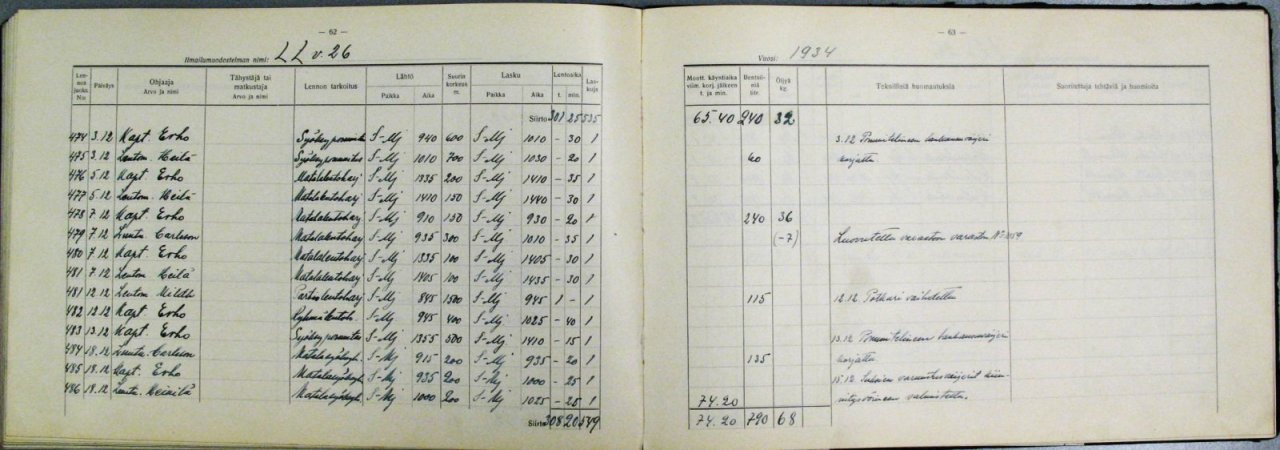 — 62 —
Ilmailumuodostelman nimi: LL v. 26
Lennon juoks. N:o Päiväys Ohjaaja Arvo ja nimi Tähystäjä tai matkustaja Arvo ja nimi Lennon tarkoitus Lähtö Paikka Aika Suurin korkeus m. Lasku Paikka Aika Lentoaika t. min. Laskuja
Siirto 301 25 535
474 3.12 Kapt. Erho S-Mj 940 600 S-Mj 1010 - 30 1
475 3.12 Lentom Heilä Syöksypommitus S-Mj 1010 700 S-Mj 1030 - 20 1
476 5.12 Kapt. Erho Matalalentoharj S-Mj 1335 200 S-Mj 1410 - 35 1
477 5.12 Lentom. Heilä Matalalentoharj S-Mj 1410 150 S-Mj 1440 - 30 1
478 7.12 Kapt. Erho Matalalentoharj S-Mj 910 150 S-Mj 930 - 20 1
479 7.12 Luutn. Carlsson Matalalentoharj S-Mj 935 300 S-Mj 1010 - 35 1
480 7.12 Kapt. Erho Matalalentoharj S-Mj 1335 100 S-Mj 1405 - 30 1
481 7.12 Lentom Heilä Matalalentoharj S-Mj 1405 100 S-Mj 1435 - 30 1
481 12.12 Lentom S-Mj 845 1500 S-Mj 945 1 - 1
482 12.12 Kapt. Erho S-Mj 945 400 S-Mj 1025 - 40 1
483 13.12 Kapt. Erho S-Mj 1355 500 S-Mj 1410 - 15 1
484 18.12 Luutn. Carlsson S-Mj 915 200 S-Mj 935 - 20 1
485 18.12 Kapt. Erho S-Mj 935 200 S-Mj 1000 - 25 1
486 18.12 Luutn. S-Mj 1000 200 S-Mj 1025 - 25 1
Siirto 308 20 549
— 63 —
Vuosi: 1934
Moott. käyntiaika viim. korj. jälkeen t. ja min. Bentsiiniä litr. Öljyä kg. Teknillisiä huomautuksia Suoritettuja tehtäviä ja huomioita
65.40 240 32
3.12
60 korjattu
240 36
(-7) Luovutettu varaston
115 12.12 Potkuri vaihdettu
13.12
135 korjattu
15.12
74.20
74.20 790 68